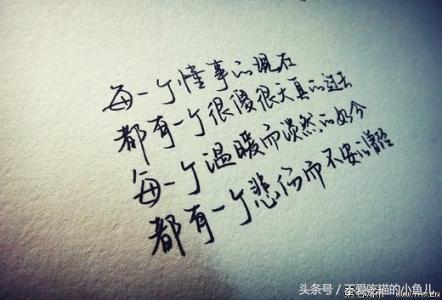 每一个懂事的现在
都有一个很傻很天真的过去
每一个温暖而淡然的如今
都有一个悲伤而不安的曾经
头条号 / 不爱吃猫的小鱼儿